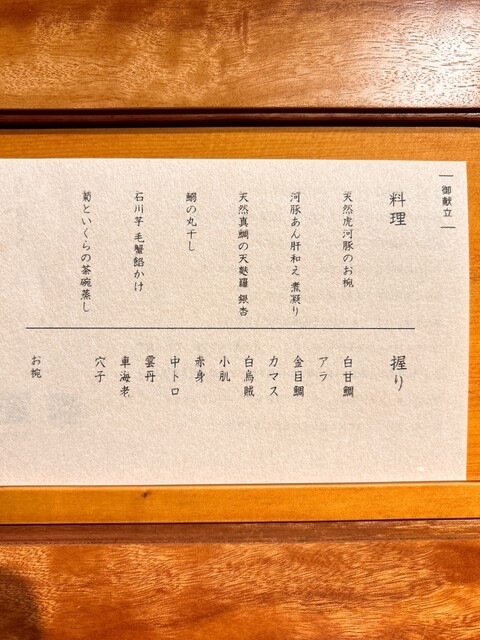 御献立
料理
天然虎河豚のお椀
河豚あん肝和え 煮凝り
天然真鯛の天麩羅 銀杏
鰯の丸干し
石川芋 毛蟹餡かけ
菊といくらの茶碗蒸し
握り
白甘鯛
アラ
金目鯛
カマス
白烏賊
小肌
赤身
中トロ
雲丹
車海老
穴子
お椀